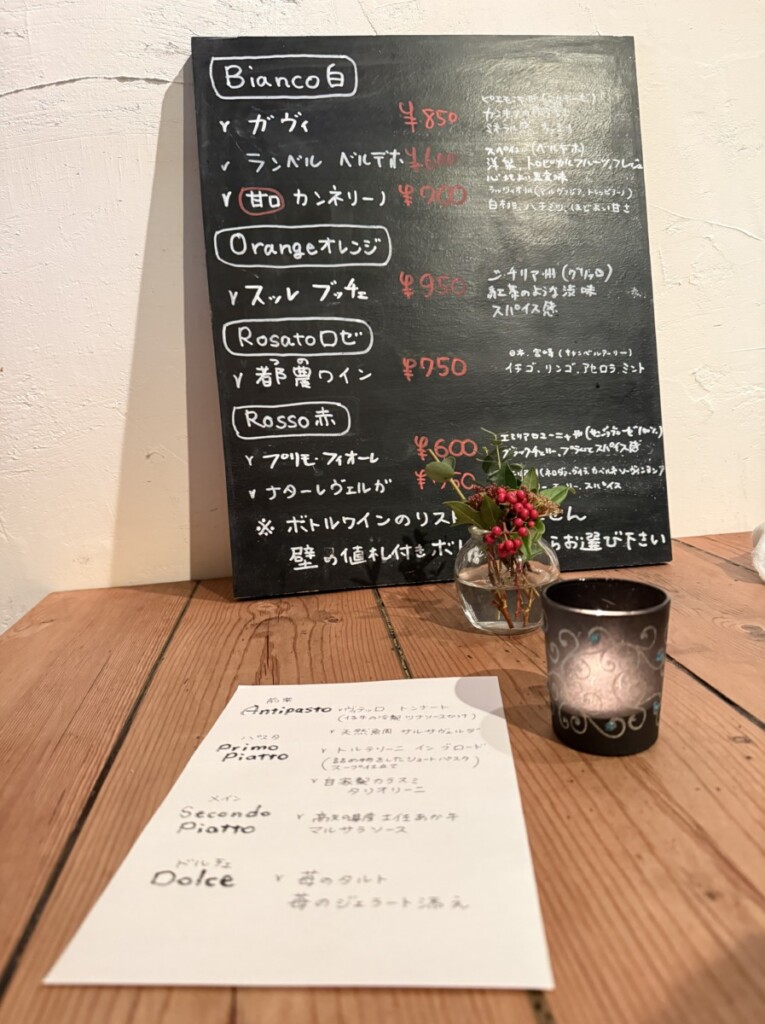 Bianco白
ガヴィ
¥850
ランベル ベルデホ
スペイン (ベルデホ)
洋梨、トロピカルフルーツ、フレッシュ
甘口 カンネリーノ
¥700
白
ハチミツ、ほどよい甘さ
Orangeオレンジ
スッレ ブッチェ
¥950
シチリア州 (グリッロ)
紅茶のような渋味
スパイス感
Rosatoロゼ
つの
都農ワイン
¥750
日本、宮崎 (キャンベルアーリー)
イチゴ、リンゴ、アセロラ、ミント
Rosso赤
プリモ・フィオーレ
¥600
ブラックチェリー、
スパイス感
ナターレヴェルガ
スパイス
※ ボトルワインのリスト せん
壁の値札付きボ らお選び下さい
前菜
Antipasto
ヴィテッロ トンナート
(仔牛の冷製 ツナソースがけ)
天然
サルサヴェルデ
パスタ
Primo
Piatto
トルテリーニ イン ブロード
(詰め物をしたショートパスタ
スープ仕立て
自家製カラスミ
タリオリーニ
メイン
Secondo
Piatto
高知県産土佐あか牛
マルサラソース
ドルチェ
Dolce
苺のタルト
苺のジェラート添え